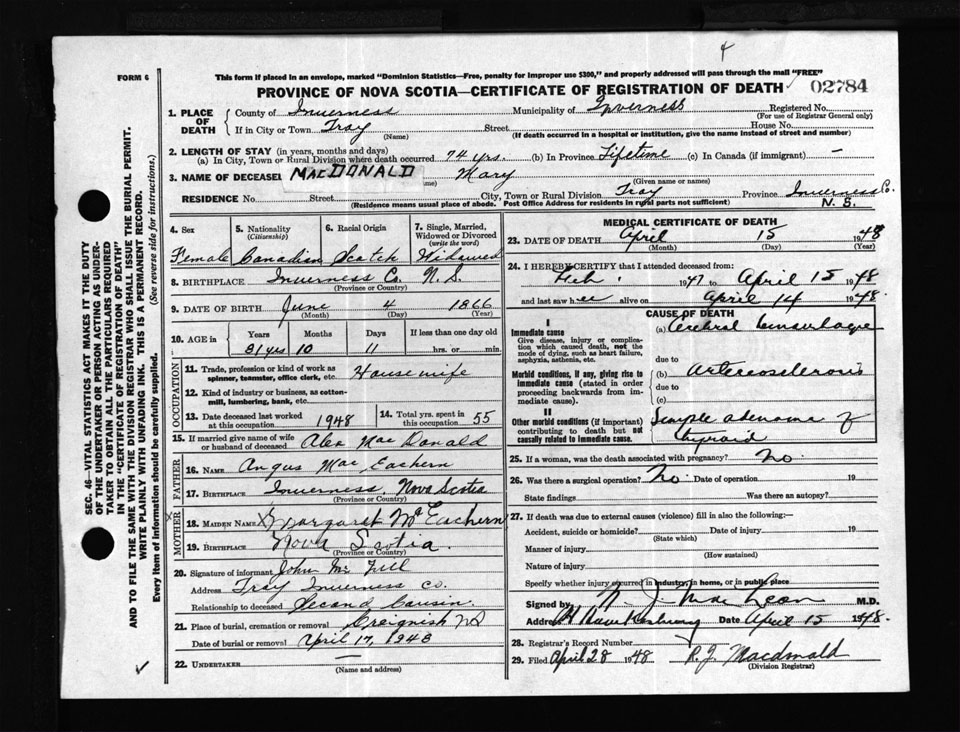 4
This form if placed in an envelope, marked "Dominion Statistics—Free, penalty for improper use $300," and properly addressed will pass through the mail "FREE"
FORM 6
PROVINCE OF NOVA SCOTIA—CERTIFICATE OF REGISTRATION OF DEATH 02784
1. PLACE OF DEATH County of Inverness Municipality of Inverness Registered No.
(For use of Registrar General only)
If in City or Town Troy Street House No.
(Name) (If death occurred in a hospital or institution, give the name instead of street and number)
2. LENGTH OF STAY (in years, months and days)
(a) In City, Town or Rural Division where death occurred 74 yrs. (b) In Province Lifetime (c) In Canada (if immigrant) —
3. NAME OF DECEASED MACDONALD Mary
(Given name or names)
RESIDENCE No. Street City, Town or Rural Division Troy Province Inverness Co. N. S.
(Residence means usual place of abode. Post Office Address for residents in rural parts not sufficient)
4. Sex 5. Nationality (Citizenship) 6. Racial Origin 7. Single, Married, Widowed or Divorced (write the word)
Female Canadian Scotch Widowed
8. BIRTHPLACE Inverness Co. N. S.
(Province or Country)
9. DATE OF BIRTH June 4 1866
(Month) (Day) (Year)
10. AGE in Years Months Days If less than one day old
81 yrs 10 11 hrs. or min.
OCCUPATION
11. Trade, profession or kind of work as spinner, teamster, office clerk, etc. Housewife
12. Kind of industry or business, as cotton-mill, lumbering, bank, etc.
13. Date deceased last worked at this occupation 1948 14. Total yrs. spent in this occupation 55
15. If married give name of wife or husband of deceased Alex Mac Donald
FATHER
16. NAME Angus Mac Eachern
17. BIRTHPLACE Inverness, Nova Scotia
(Province or Country)
MOTHER
18. MAIDEN NAME X Margaret McEachern
19. BIRTHPLACE Nova Scotia.
(Province or Country)
20. Signature of informant John Mc
Address Troy Inverness Co.
Relationship to deceased Second Cousin.
21. Place of burial, cremation or removal Creignish NS
Date of burial or removal April 17, 1948
22. UNDERTAKER —
(Name and address)
MEDICAL CERTIFICATE OF DEATH
23. DATE OF DEATH April 15 1948
(Month) (Day) (Year)
24. I HEREBY CERTIFY that I attended deceased from:
Feb. 1947 to April 15 1948
and last saw her alive on April 14 1948.
CAUSE OF DEATH
I
Immediate cause
Give disease, injury or complication which caused death, not the mode of dying, such as heart failure, asphyxia, asthenia, etc.
(a) Cerebral hemorrhage
due to
Morbid conditions, if any, giving rise to immediate cause (stated in order proceeding backwards from immediate cause).
(b) Arteriosclerosis
due to
(c)
II
Other morbid conditions (if important) contributing to death but not causally related to immediate cause.
Simple adenoma of thyroid
25. If a woman, was the death associated with pregnancy? No.
26. Was there a surgical operation? No. Date of operation 19
State findings Was there an autopsy?
27. If death was due to external causes (violence) fill in also the following:—
Accident, suicide or homicide? Date of injury 19
(State which)
Manner of injury
(How sustained)
Nature of injury
Specify whether injury occurred in industry, in home, or in public place
Signed by J. MacLean M.D.
Address Pt Hawkesbury Date April 15 1948.
28. Registrar's Record Number
29. Filed April 28 1948 R. J. Macdonald
(Division Registrar)
SEC. 46—VITAL STATISTICS ACT MAKES IT THE DUTY
OF THE UNDERTAKER OR PERSON ACTING AS UNDER-
TAKER TO OBTAIN ALL THE PARTICULARS REQUIRED
IN THE "CERTIFICATE OF REGISTRATION OF DEATH"
AND TO FILE THE SAME WITH THE DIVISION REGISTRAR WHO SHALL ISSUE THE BURIAL PERMIT.
WRITE PLAINLY WITH UNFADING INK. THIS IS A PERMANENT RECORD.
Every item of Information should be carefully supplied. (See reverse side for instructions.)